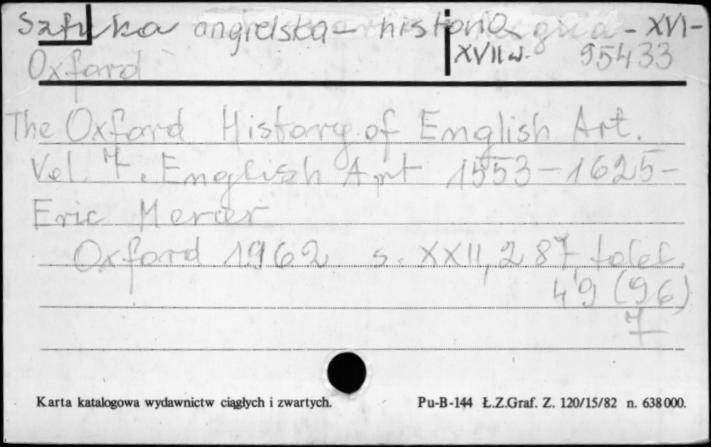 Sztuka angielska - historia - XVI-
XVII w. 95433
Oxford
The Oxford History of English Art.
Vol. 7. English Art 1553-1625-
Eric Mercer
Oxford 1962 s. XXII, 287
49 (96)
7
Karta katalogowa wydawnictw ciągłych i zwartych. Pu-B-144 Ł.Z.Graf. Z. 120/15/82 n. 638 000.